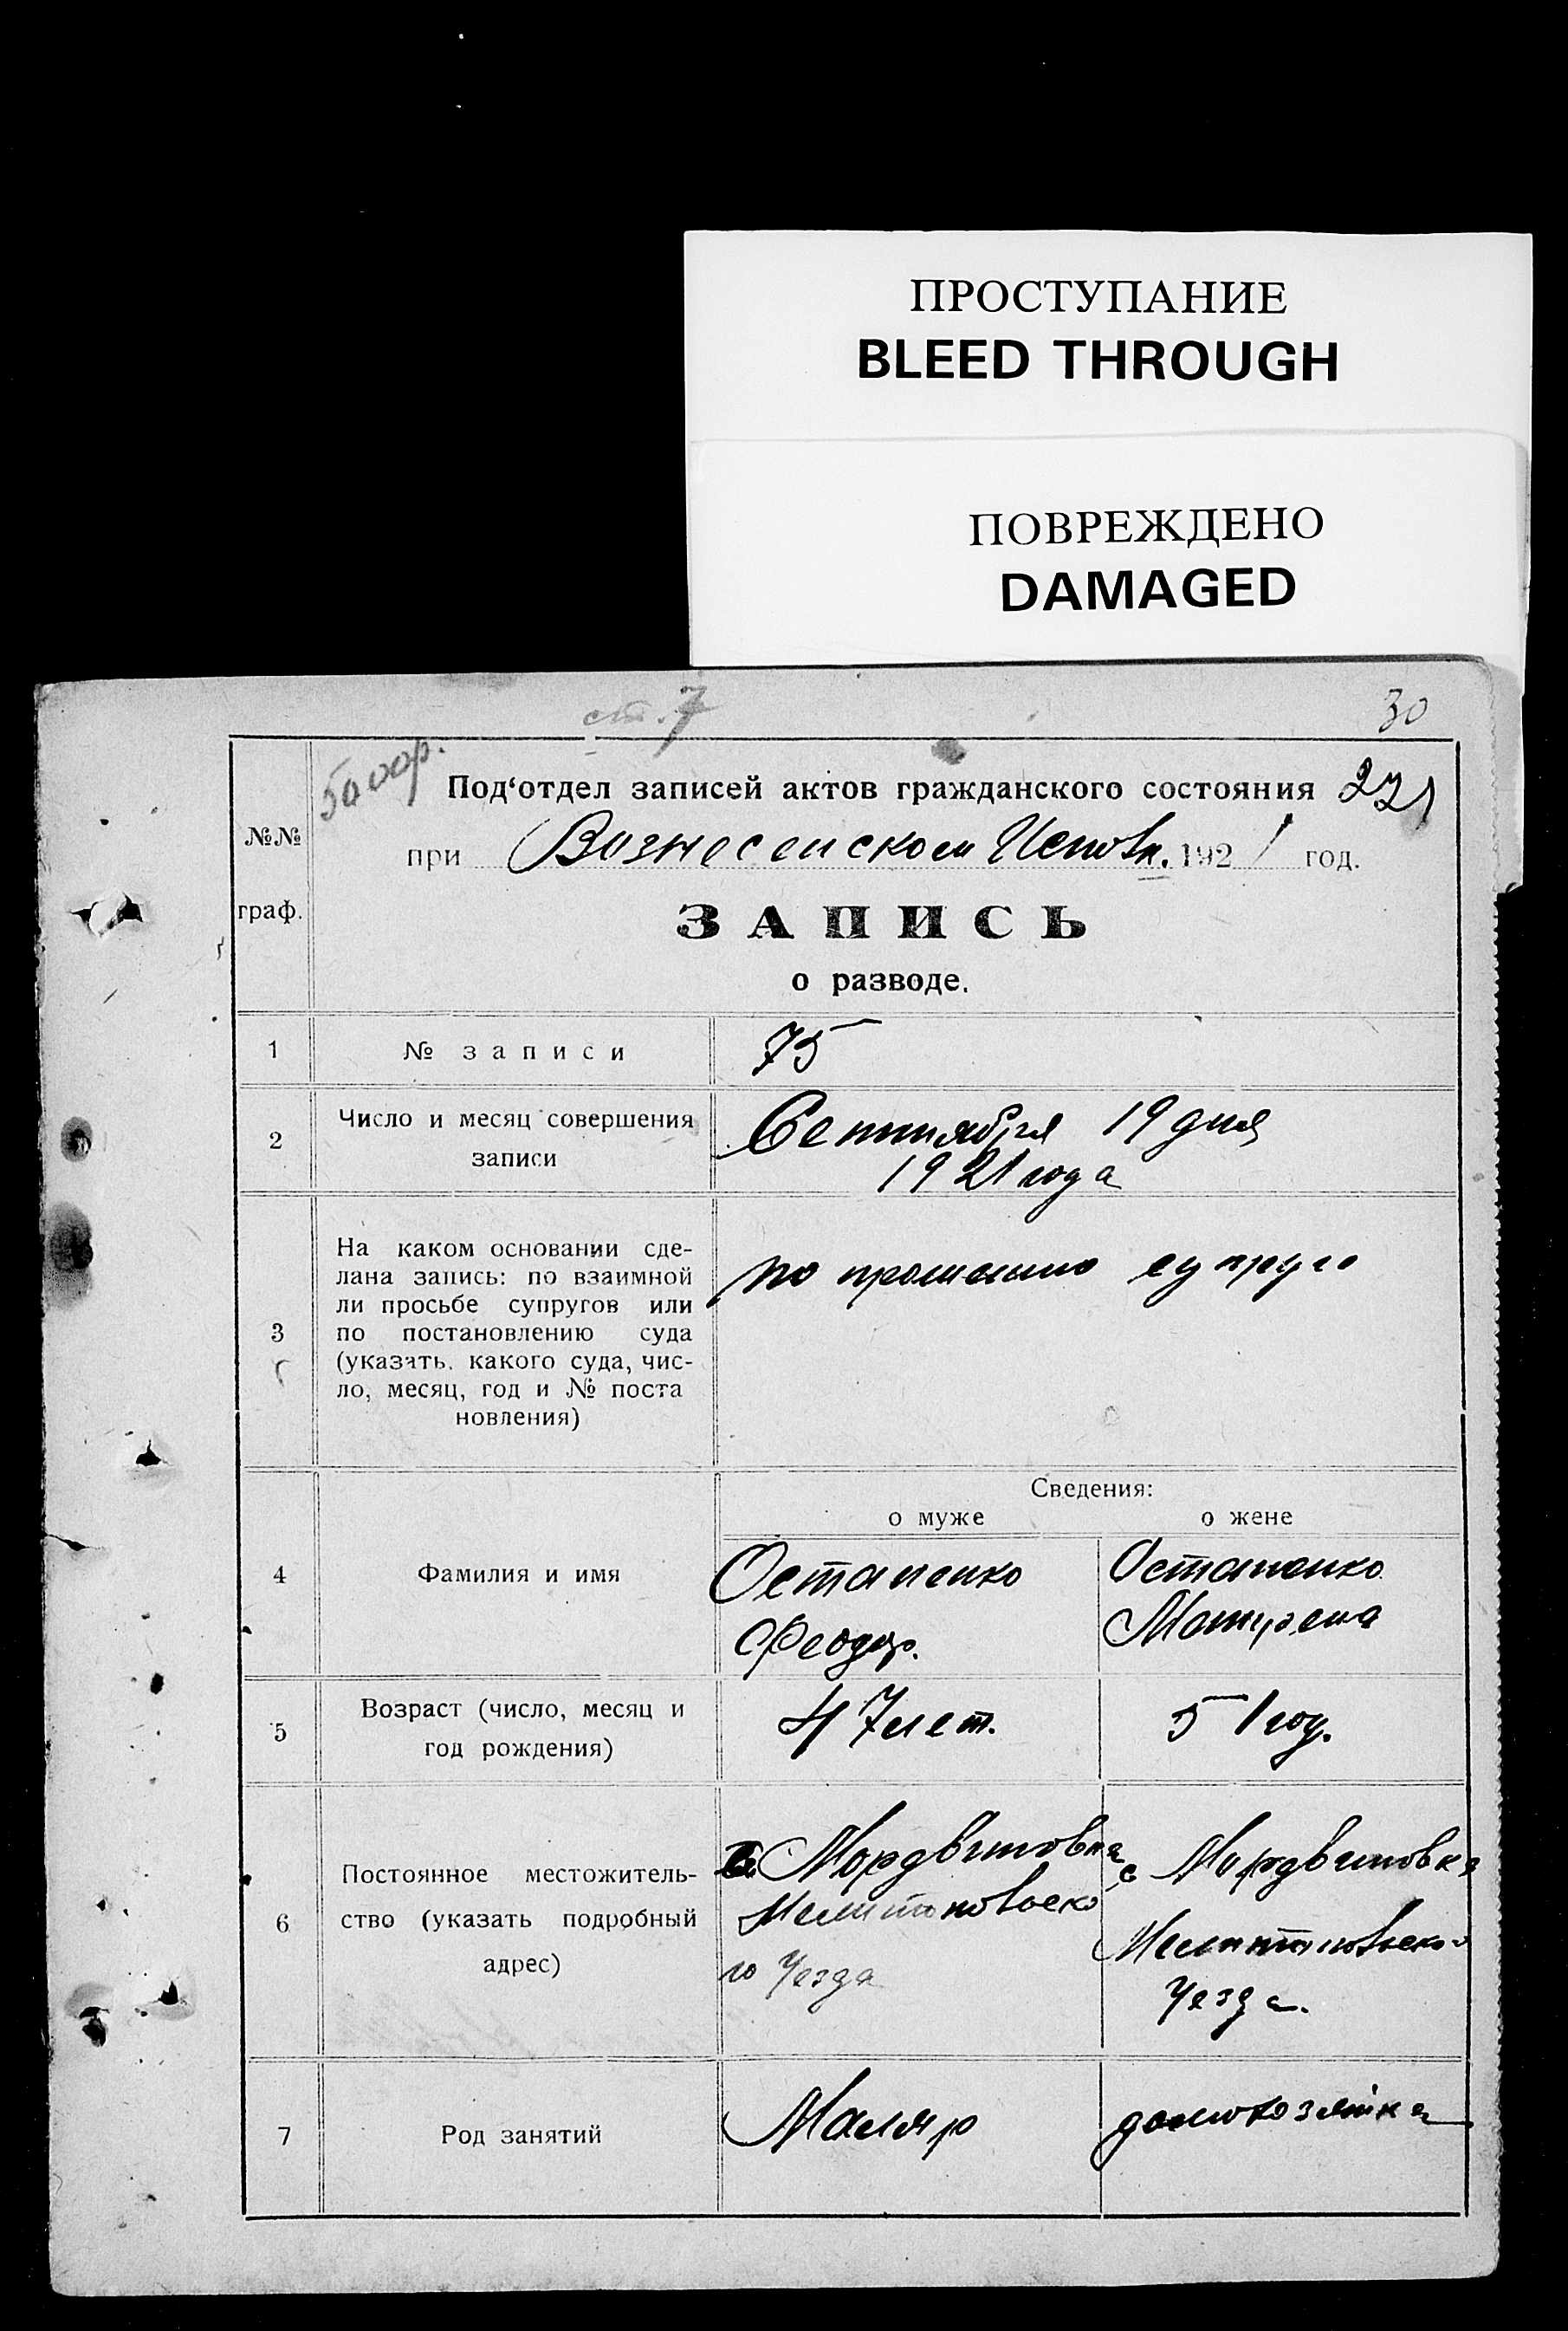 ПРОСТУПАНИЕ
BLEED THROUGH
ПОВРЕЖДЕНО
DAMAGED
ст. 7
30
221
Под‘отдел записей актов гражданского состояния
при Вознесенском 1921 год.
№№
граф.
ЗАПИСЬ
о разводе.
1
№ записи
75
2
Число и месяц совершения
записи
Сентября 19 дня
1921 года
3
На каком основании сде-
лана запись: по взаимной
ли просьбе супругов или
по постановлению суда
(указать. какого суда, чис-
ло, месяц, год и № поста
новления)
по прошению супруго
Сведения:
о муже
о жене
4
Фамилия и имя
Остапенко
Феодор.
Остапенко
Матрена
5
Возраст (число, месяц и
год рождения)
47 лет.
51 год.
6
Постоянное местожитель-
ство (указать подробный
адрес)
Мордвиновка
Мелитоповско
го Уезда
с Мордвиновка
Уезда.
7
Род занятий
Маляр
домохозяйка